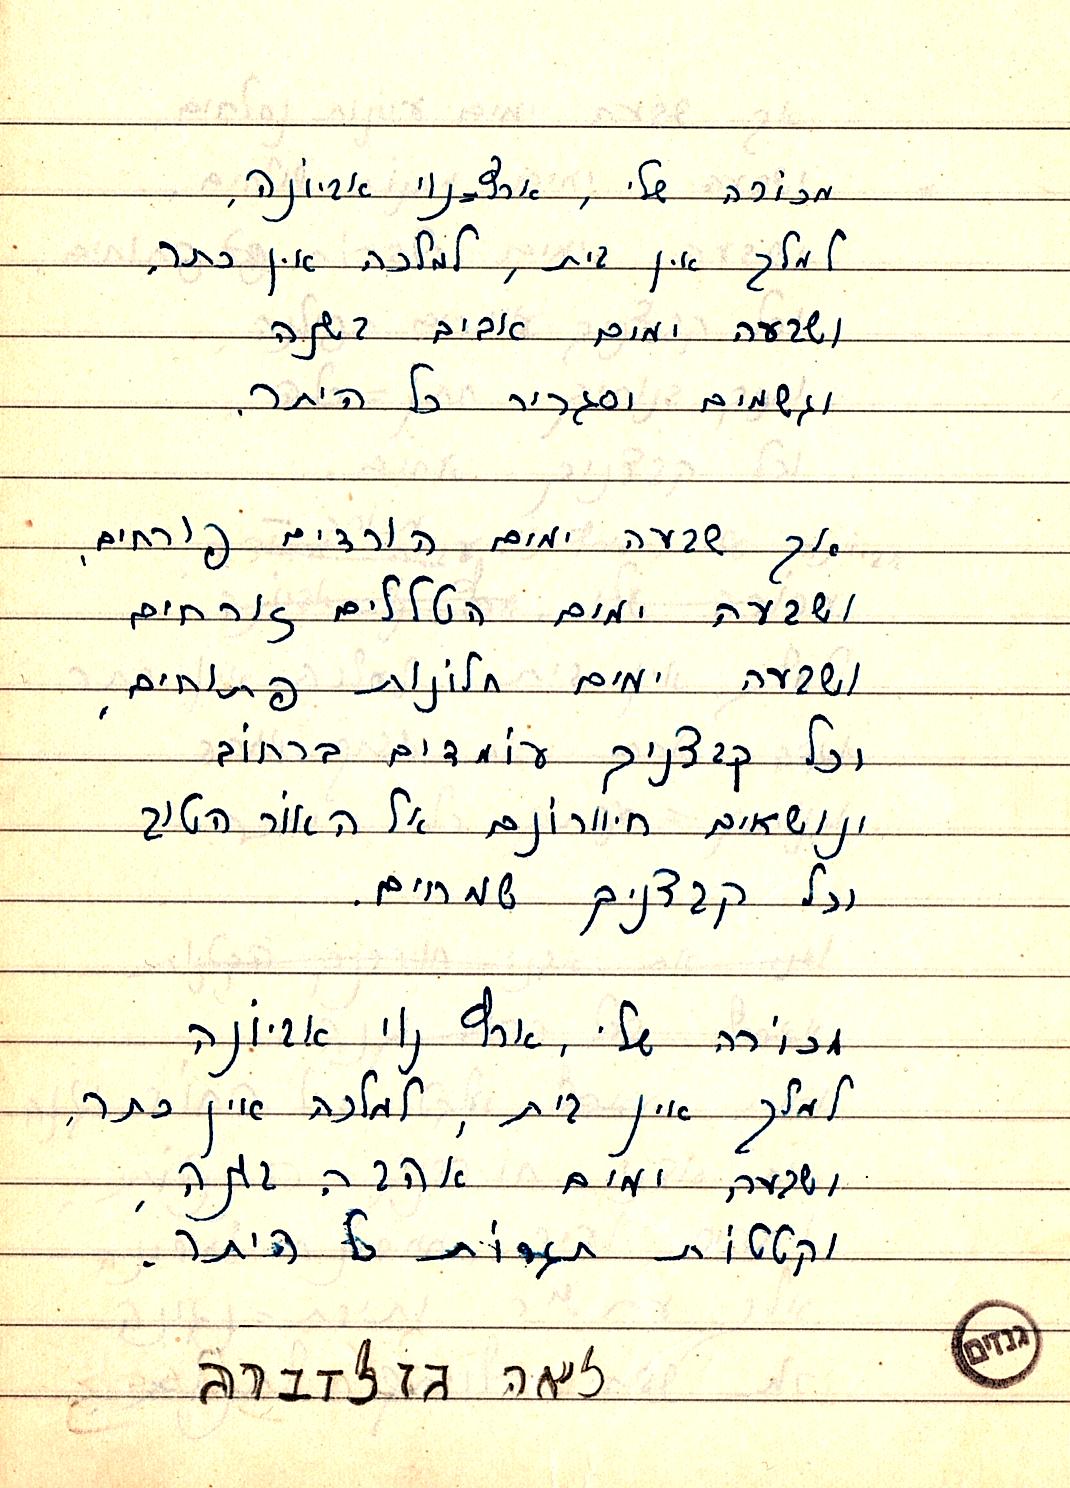 מכורה שלי, ארץ-נוי אביונה,
למלך אין בית, למלכה אין כתר,
ושבעה ימים אביב בשנה
וגשמים וסגריר כל היתר.
אך שבעה ימים הורדים פורחים,
ושבעה ימים הטללים זורחים
ושבעה ימים חלונות פתוחים,
וכל קבצניך עומדים ברחוב
ונושאים חיוורונם אל האור הטוב
וכל קבצניך שמחים.
מכורה שלי, ארץ נוי אביונה
למלך אין בית, למלכה אין כתר,
ושבעה ימים אהבה בשנה,
וקטטות תגרות כל היתר.
לאה גולדברג
גנזים